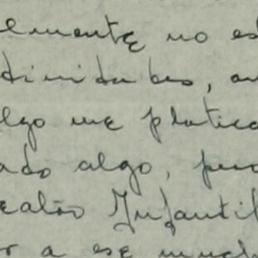 lmente no es
dividuos, au
lgo me platica
ado algo, pero
eatro Infantil
r a ese much